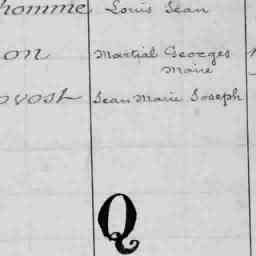 homme Louis Jean
on Martial Georges
Marie
ovost Jean Marie Joseph
Q